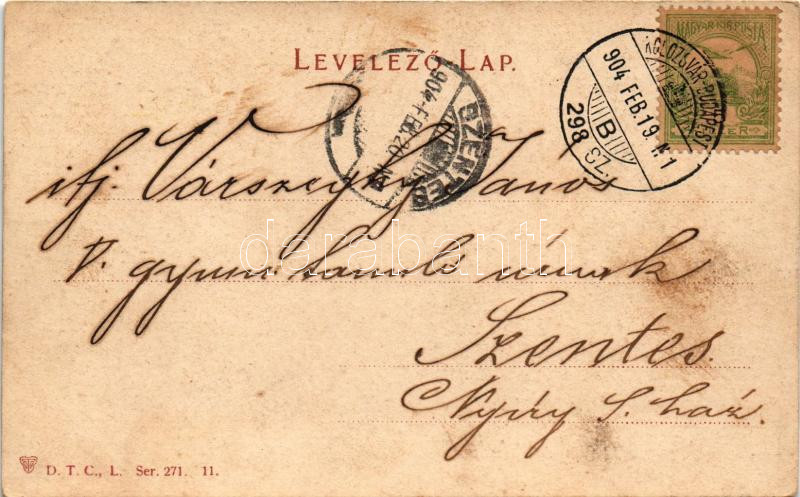 LEVELEZŐ LAP.
MAGYAR KIR. POSTA
KOLOZSVÁR-BUDAPEST
904 FEB. 19. N1
B
298 SZ.
904 FEB. 20
SZENTES
ifj. Várszeghy János
V. gymn. tanuló úrnak
Szentes.
Nyíry f. ház.
darabanth
D. T. C., L. Ser. 271. 11.